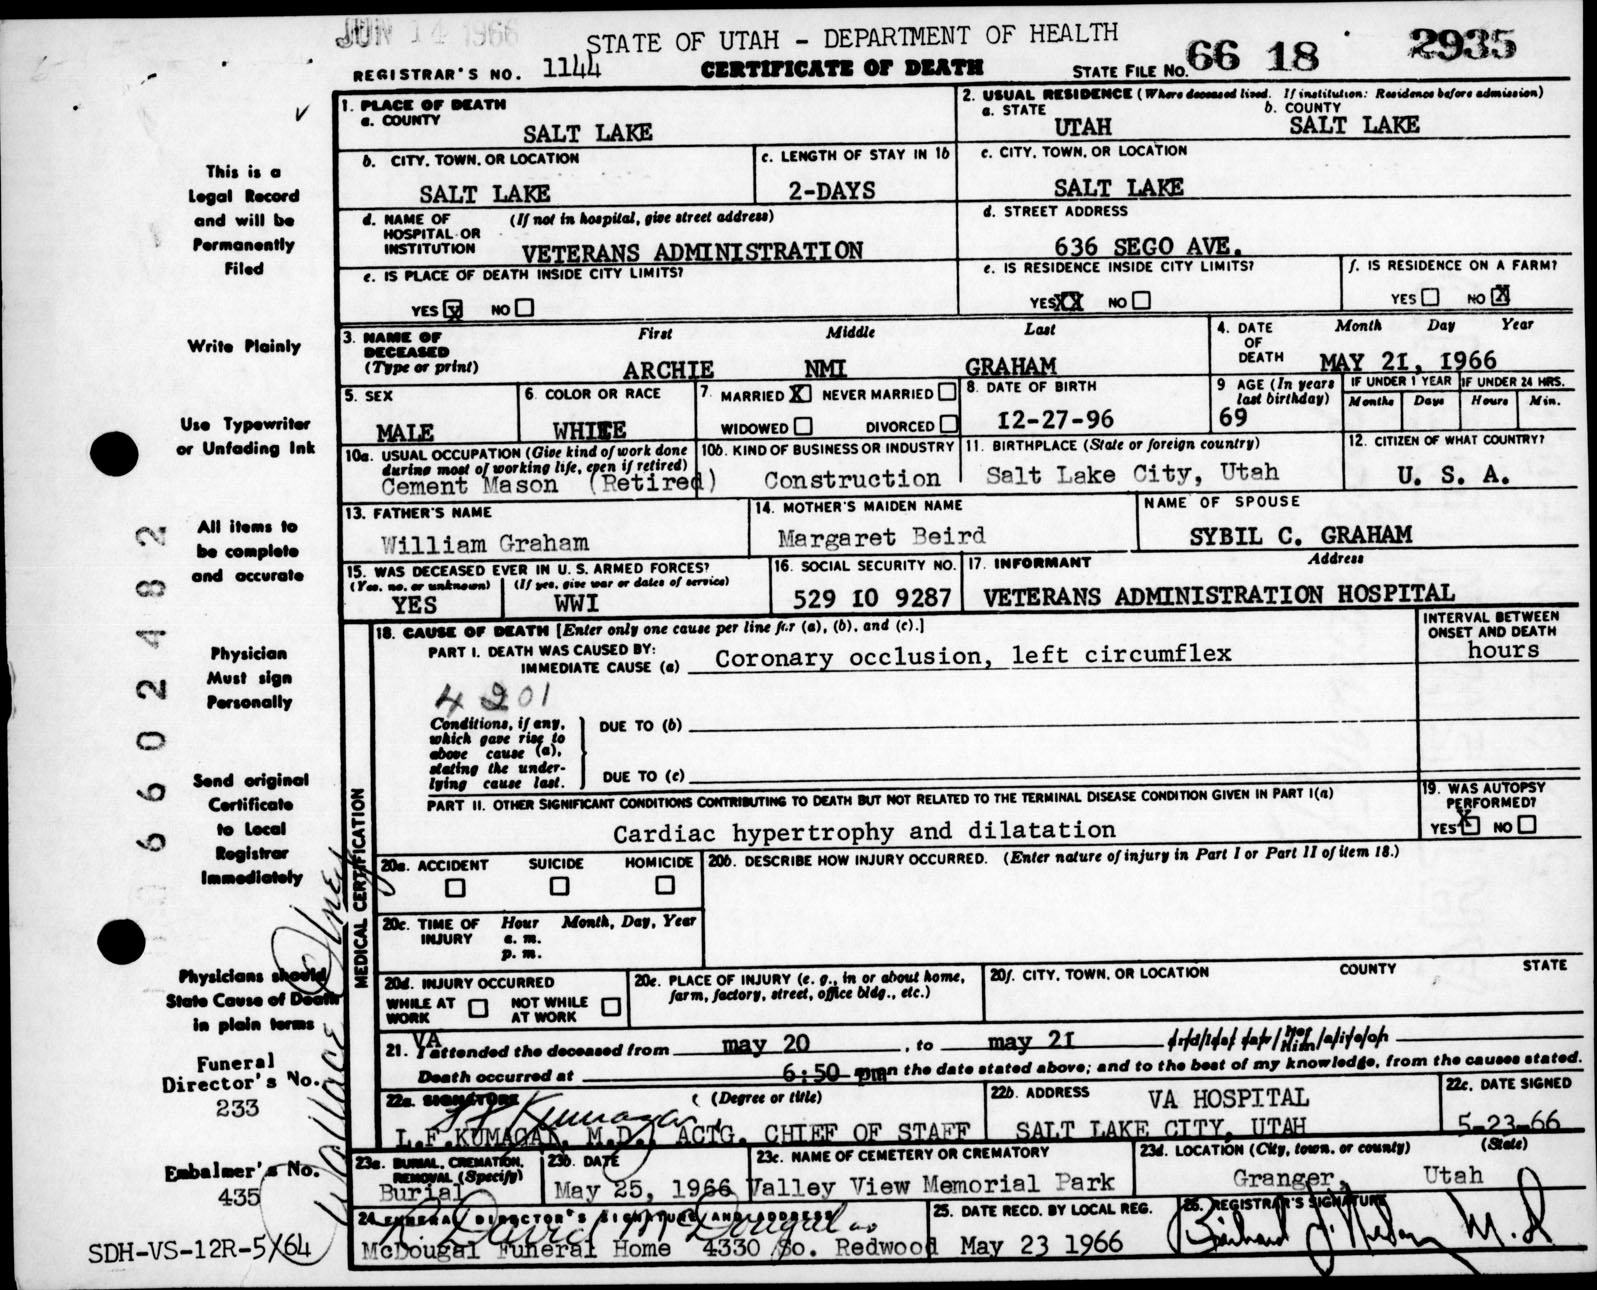 JUN 14 1966
STATE OF UTAH - DEPARTMENT OF HEALTH
REGISTRAR'S NO. 1144
CERTIFICATE OF DEATH
STATE FILE NO. 66 18 2935
1. PLACE OF DEATH
a. COUNTY
SALT LAKE
2. USUAL RESIDENCE (Where deceased lived. If institution: Residence before admission)
a. STATE
UTAH
b. COUNTY
SALT LAKE
b. CITY, TOWN, OR LOCATION
SALT LAKE
c. LENGTH OF STAY IN 1b
2-DAYS
c. CITY, TOWN, OR LOCATION
SALT LAKE
d. NAME OF HOSPITAL OR INSTITUTION (If not in hospital, give street address)
VETERANS ADMINISTRATION
d. STREET ADDRESS
636 SEGO AVE.
e. IS PLACE OF DEATH INSIDE CITY LIMITS?
YES X NO
e. IS RESIDENCE INSIDE CITY LIMITS?
YES XX NO
f. IS RESIDENCE ON A FARM?
YES NO X
3. NAME OF DECEASED (Type or print)
First Middle Last
ARCHIE NMI GRAHAM
4. DATE OF DEATH
Month Day Year
MAY 21, 1966
5. SEX
MALE
6. COLOR OR RACE
WHITE
7. MARRIED X NEVER MARRIED
WIDOWED DIVORCED
8. DATE OF BIRTH
12-27-96
9 AGE (In years last birthday)
69
IF UNDER 1 YEAR
Months Days
IF UNDER 24 HRS.
Hours Min.
10a. USUAL OCCUPATION (Give kind of work done during most of working life, even if retired)
Cement Mason (Retired)
10b. KIND OF BUSINESS OR INDUSTRY
Construction
11. BIRTHPLACE (State or foreign country)
Salt Lake City, Utah
12. CITIZEN OF WHAT COUNTRY?
U. S. A.
13. FATHER'S NAME
William Graham
14. MOTHER'S MAIDEN NAME
Margaret Beird
NAME OF SPOUSE
SYBIL C. GRAHAM
15. WAS DECEASED EVER IN U. S. ARMED FORCES?
(Yes, no, or unknown) (If yes, give war or dates of service)
YES WWI
16. SOCIAL SECURITY NO.
529 10 9287
17. INFORMANT Address
VETERANS ADMINISTRATION HOSPITAL
MEDICAL CERTIFICATION
18. CAUSE OF DEATH [Enter only one cause per line for (a), (b), and (c).]
INTERVAL BETWEEN ONSET AND DEATH
PART I. DEATH WAS CAUSED BY:
IMMEDIATE CAUSE (a) Coronary occlusion, left circumflex
hours
4201
Conditions, if any, which gave rise to above cause (a), stating the underlying cause last.
DUE TO (b)
DUE TO (c)
PART II. OTHER SIGNIFICANT CONDITIONS CONTRIBUTING TO DEATH BUT NOT RELATED TO THE TERMINAL DISEASE CONDITION GIVEN IN PART I(a)
Cardiac hypertrophy and dilatation
19. WAS AUTOPSY PERFORMED?
YES X NO
20a. ACCIDENT SUICIDE HOMICIDE
20b. DESCRIBE HOW INJURY OCCURRED. (Enter nature of injury in Part I or Part II of item 18.)
20c. TIME OF INJURY Hour Month, Day, Year
a. m.
p. m.
20d. INJURY OCCURRED
WHILE AT WORK NOT WHILE AT WORK
20e. PLACE OF INJURY (e. g., in or about home, farm, factory, street, office bldg., etc.)
20f. CITY, TOWN, OR LOCATION COUNTY STATE
21. VA I attended the deceased from may 20, to may 21
Death occurred at 6:50 pm on the date stated above; and to the best of my knowledge, from the causes stated.
22a. SIGNATURE (Degree or title)
L F Kumagai
L.F. KUMAGAI, M.D., ACTG. CHIEF OF STAFF
22b. ADDRESS
VA HOSPITAL
SALT LAKE CITY, UTAH
22c. DATE SIGNED
5-23-66
23a. BURIAL, CREMATION, REMOVAL (Specify)
Burial
23b. DATE
May 25, 1966
23c. NAME OF CEMETERY OR CREMATORY
Valley View Memorial Park
23d. LOCATION (City, town, or county) (State)
Granger, Utah
24. FUNERAL DIRECTOR'S SIGNATURE AND ADDRESS
R. David McDougal
McDougal Funeral Home 4330 So. Redwood
25. DATE RECD. BY LOCAL REG.
May 23 1966
26. REGISTRAR'S SIGNATURE
M.D.
This is a
Legal Record
and will be
Permanently
Filed
Write Plainly
Use Typewriter
or Unfading Ink
All items to
be complete
and accurate
Physician
Must sign
Personally
Send original
Certificate
to Local
Registrar
Immediately
Physicians should
State Cause of Death
in plain terms
Funeral
Director's No.
233
Embalmer's No.
435
SDH-VS-12R-5/64
6602482
Wallace